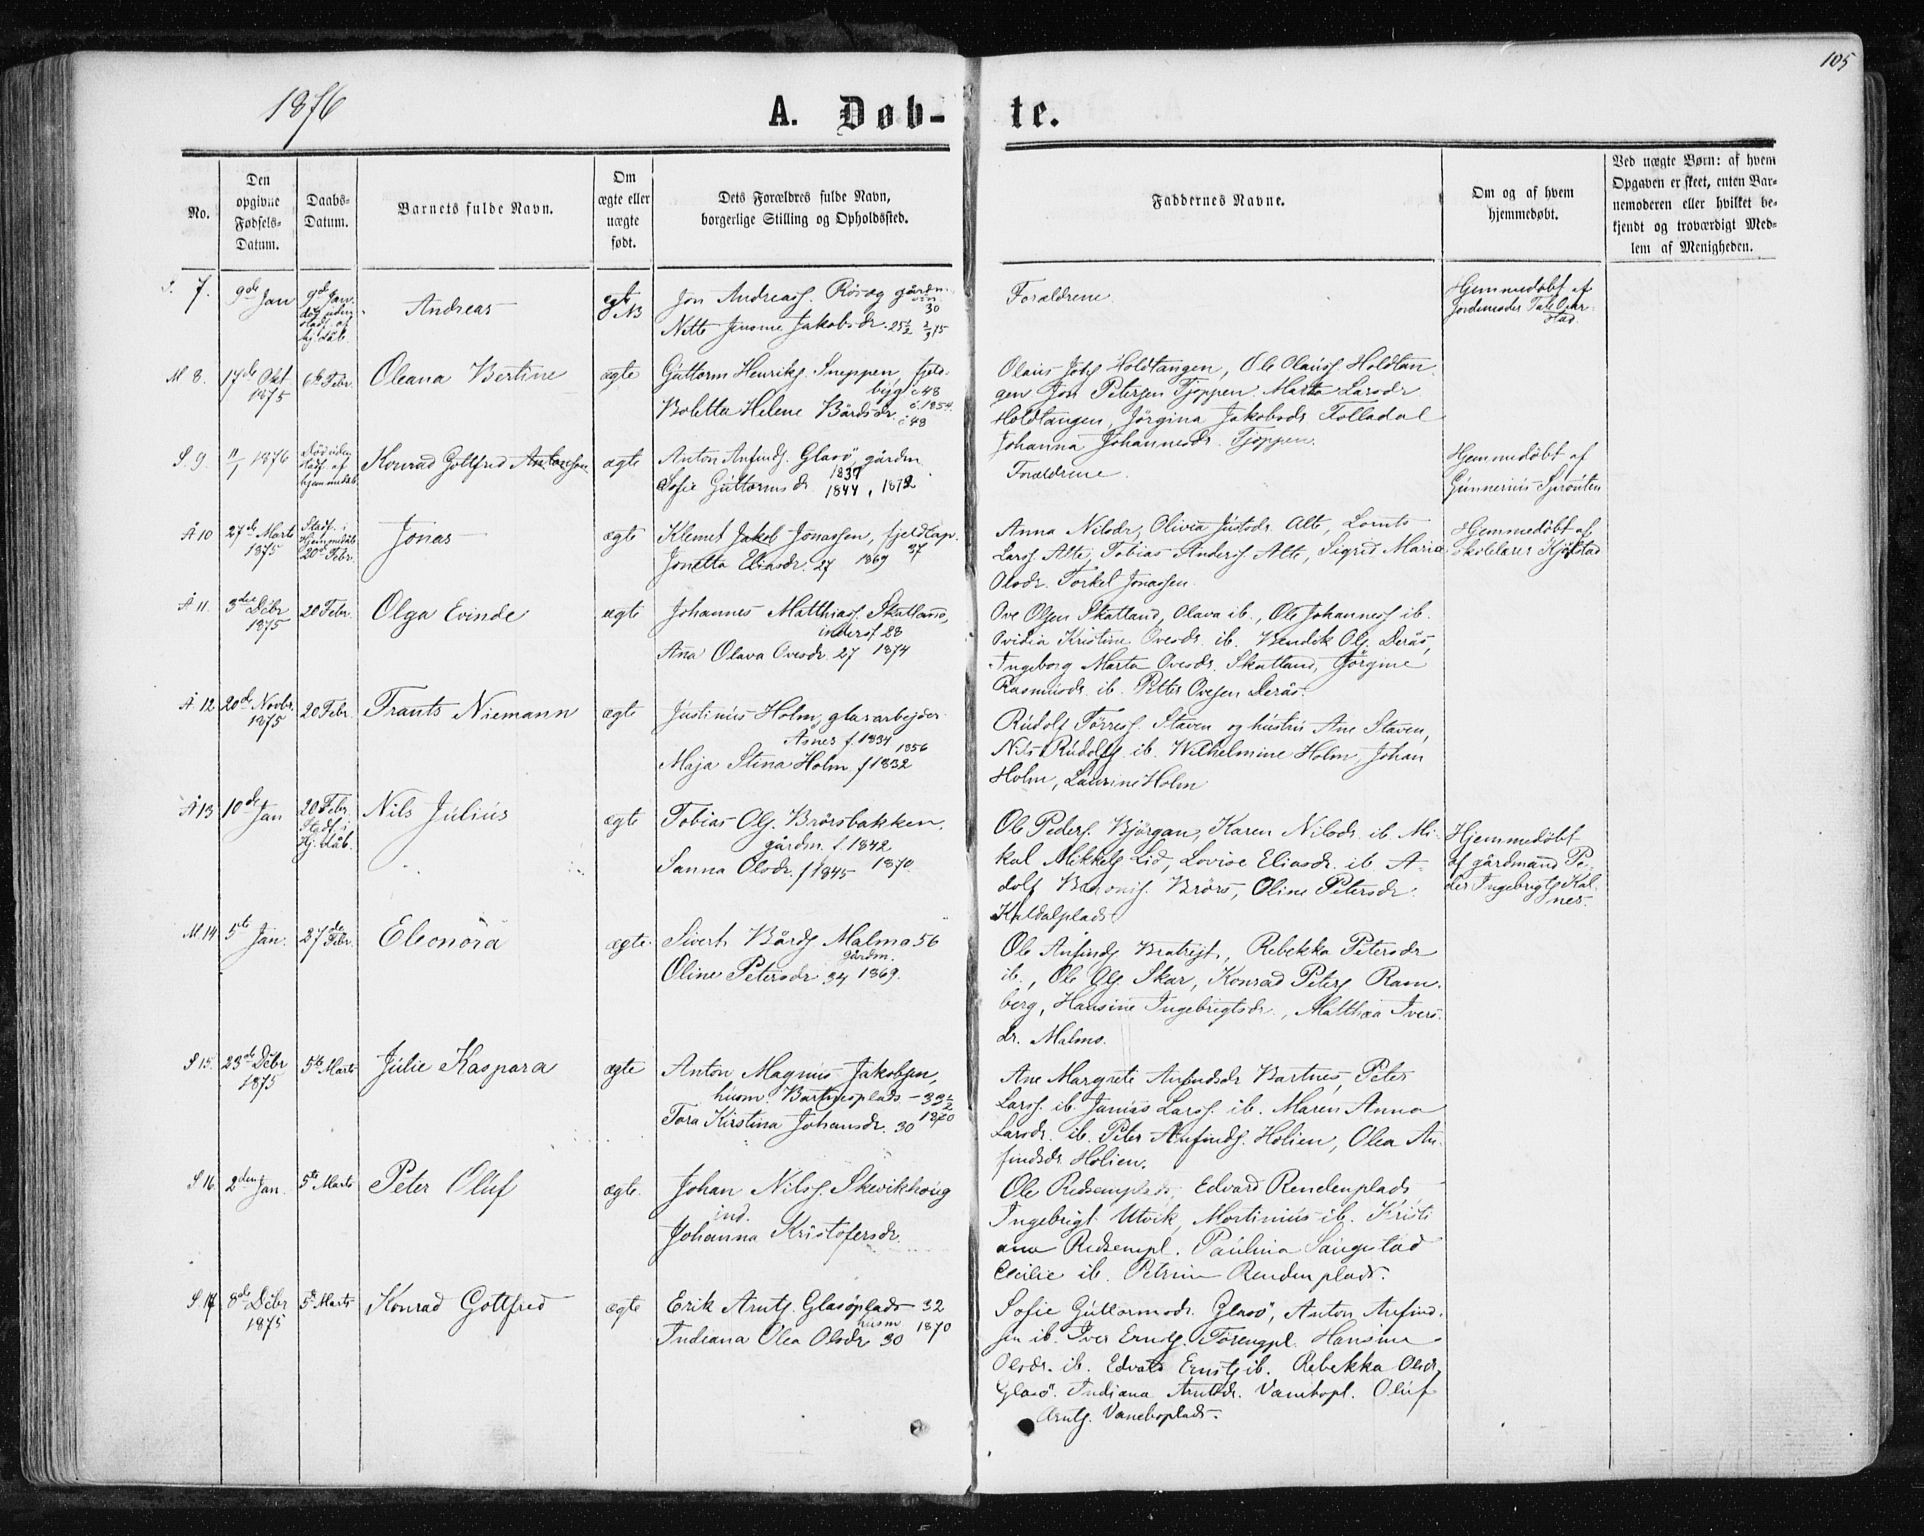 105
1876
A. Døb-te.
No.
Den opgivne Fødsels-Datum.
Daabs-Datum.
Barnets fulde Navn.
Om ægte eller uægte født.
Dets Forældres fulde Navn, borgerlige Stilling og Opholdssted.
Faddernes Navne.
Om og af hvem hjemmedøbt.
Ved uægte Børn: af hvem Opgaven er skeet, enten Barnemoderen eller hvilket bekjendt og troværdigt Medlem af Menigheden.
7. 9de Jan 9de Jan. Andreas ægte NB
Jon Andreass. Rösæg gårdm. 30
Nette Jensine Jakobsdr. 25½
Forældrene.
Hjemmedøbt af Jordemoder
M 8. 17de Okt 1875 6te Febr. Oleana Bertine ægte
Guttorm Henriks. Sneppen, fjeldbygd 48
Boletta Helene Bårdsdr. 48 1854
Olaus Johs Holdtangen, Ole Olauss Holdtan-
gen Jon Petersen Tjoppen Marta Larsdr
Holdtangen, Jörgina Jakobsdr Folladal
Johanna Johannesdr. Tjoppen.
S. 9. 11/1 1876 Död uden stadf. af hjemmedåb Konrad Gottfred Antonsen ægte
Anton Anfinds. Glasö gårdm. 1837
Sofie Guttormsdr. 1844, 1872
Forældrene.
Hjemmedøbt af
Gunnerius Sprouten
Å 10 27de Marts 1875 Stadf. i Hjemmedåb 20de Febr. Jonas ægte
Klemet Jakob Jonassen, fjeldlap. 37
Jonetta Eliasdr. 27 1869
Anna Nilsdr, Olivia Justsdr. Alte, Lornts
Larss Alte, Tobias Anderss Alte, Sigrid Maria
Olsdr. Torkel Jonassen.
Hjemmedøbt af
Skolelærer Kjölstad
Å 11. 3die Debr 1875 20 Febr. Olga Evinde ægte
Johannes Matthiass. Skatland,
inderst 28
Ana Olava Ovesdr. 27 1874
Ove Olsen Skatland, Olava ib., Ole Johanness ib.
Ovidia Kristine Ovesdr. ib. Bendik Ols. Derås,
Ingeborg Marta Ovesdr. Skatland, Jörgine
Rasmusdr. ib. Petter Ovesen Derås.
Å 12 20de Novbr. 1875 20 Febr. Frants Niemann ægte
Justinus Holm, glasarbejder
Asnes f. 1834 1856
Maja Stina Holm f 1832
Rudolf Törress. Staven og hustru Ane Staven,
Nils Rudolfs ib. Wilhelmine Holm, Johan
Holm, Laurine Holm
Å 13 10de Jan 20 Febr. Stadf. i Hj. dåb. Nils Julius ægte
Tobias Ols. Brörsbakken,
gårdm. f. 1842
Sanna Olsdr. f 1845 1870
Ole Peders. Bjørgan, Karen Nilsdr. ib. Mi-
kal Mikkels Lid, Lovise Eliasdr. ib. A-
dolf Baronis. Brörs, Oline Petersdr.
Kaldalplads
Hjemmedøbt
af gårdmand Pe-
der Ingebrigts Kal-
nes.
M 14 5te Jan. 27de Febr. Eleonora ægte.
Sivert Bårds Malmo 56
gårdm.
Oline Petersdr 34 1869.
Ole Anfinds Bratrejt, Rebekka Petersdr
ib., Ole Ols. Skar, Konrad Peters Ram-
berg, Hansine Ingebrigtsdr., Matthæa Ivers-
dr. Malmo.
S 15. 23de Debr 1875 5te Marts Julie Kaspara ægte
Anton Magnus Jakobsen,
husm. Bartnesplads – 33½
Tora Kirstina Johansdr. 30 1870
Ane Margrete Anfindsdr Bartnes, Peter
Larss. ib. Janias Larss. ib. Maren Anna
Larsdr. ib. Peter Anfinds. Holien, Olea An-
findsdr Holien.
S 16. 2den Jan. 5te Marts Peter Oluf ægte.
Johan Nilss. Skevikhoug
ind.
Johanna Kristofersdr.
Ole Redsemplads, Edvard Rendenplads
Ingebrigt Utvik, Mortinius ib. Kristi
ane Redsempl. Paulina Saugestad
Cecilie ib. Petrine Rendenplads.
S 17 8de Debr 1875 5te Marts Konrad Gottfred ægte
Erik Arnts. Glasöplads 32
husm
Indiana Olea Olsdr 30 1870
Sofie Guttormsdr. Glasö, Anton Anfind-
sen ib. Iver Ernts. Törengpl. Hansine
Olsdr. ib. Edvard Ernsts ib. Rebekka Olsdr
Glasö. Indiana Arntsdr. Vanebopl. Oluf
Arnts. Vaneboplads.